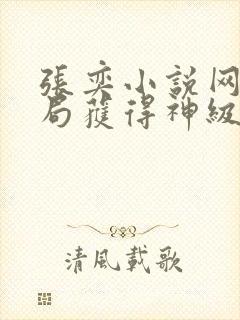 張奕小說网
局獲得神級
清風載歌